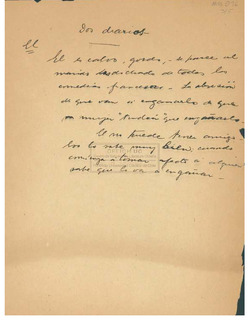 Dos diarios
El
El es calvo, gordo, se parece al
marido desdichado de todas las
comedias francesas. La obsesión
de que van a engañarlo, de que
su mujer "tendrá" que engañarlo.
El no puede tener amigos
los lo sabe muy bien, cuando
comienza a tomar afecto a alguien
sabe que le va a engañar.